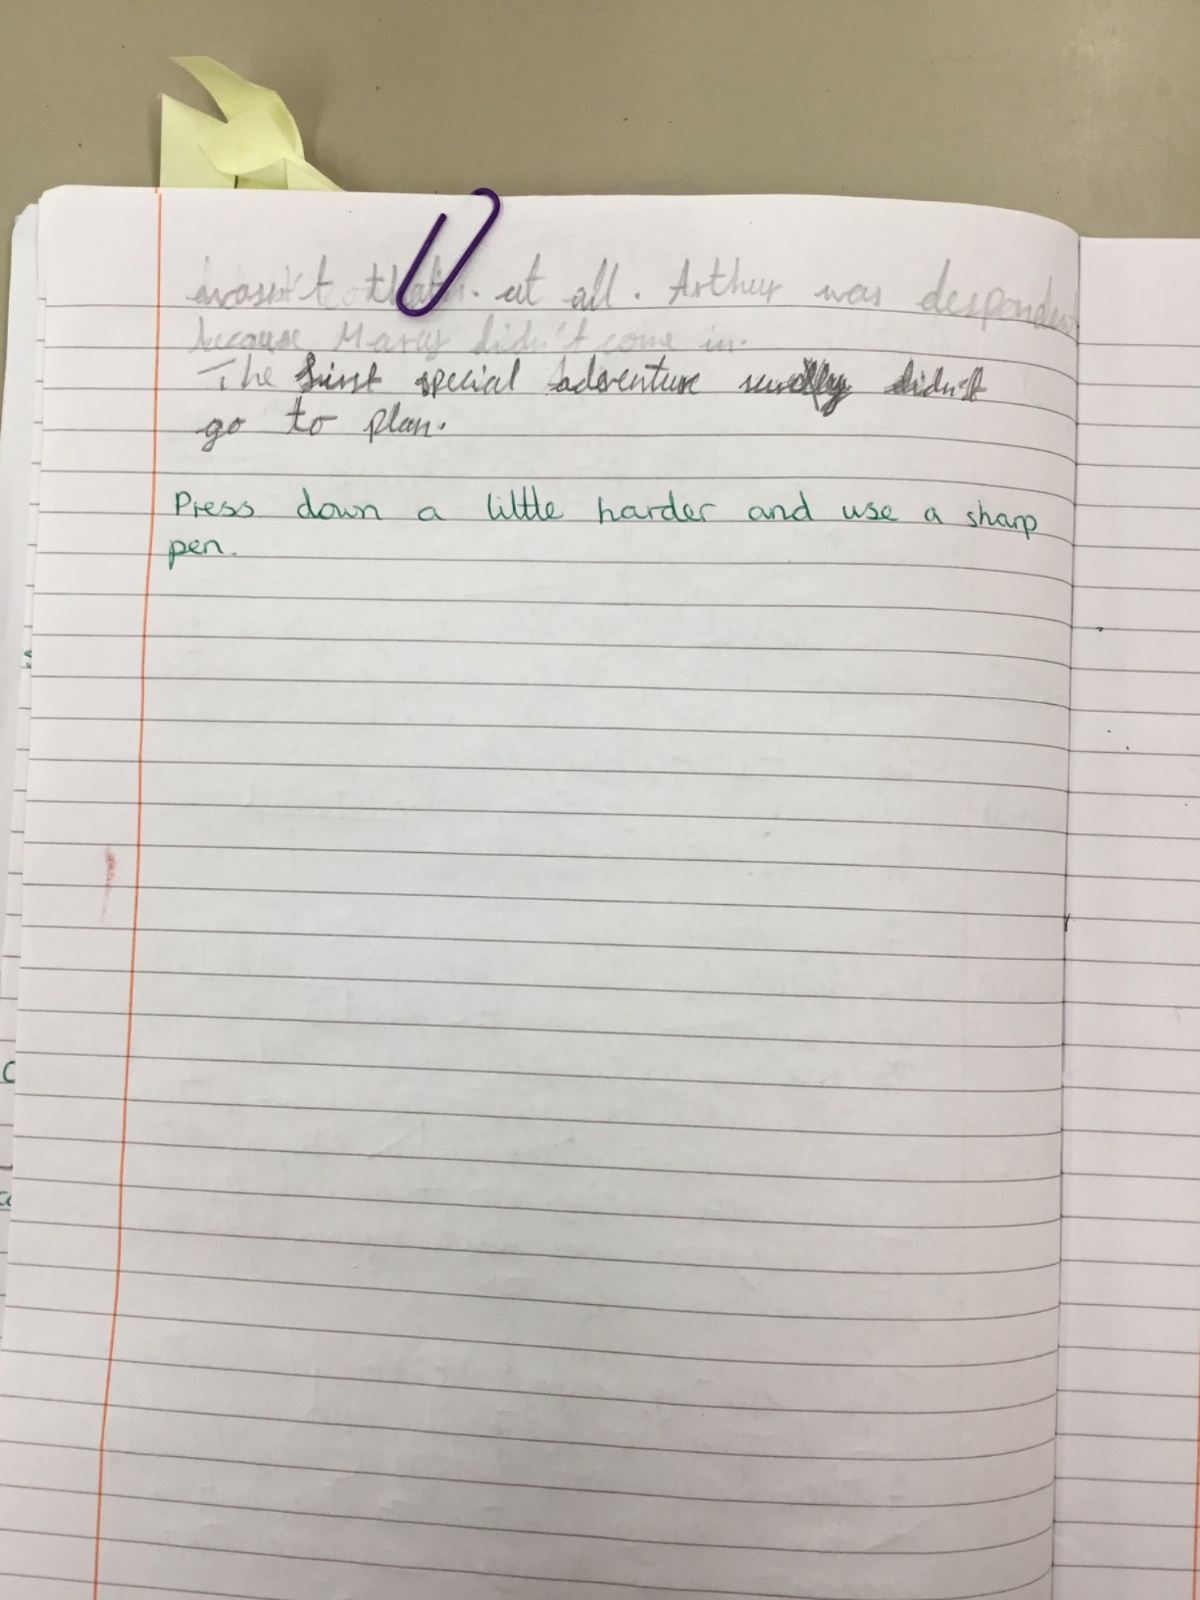 wasn't that. at all. Arthur was desponden
because Marcy didn't come in.
The first special adventure didn't
go to plan.
Press down a little harder and use a sharp
pen.